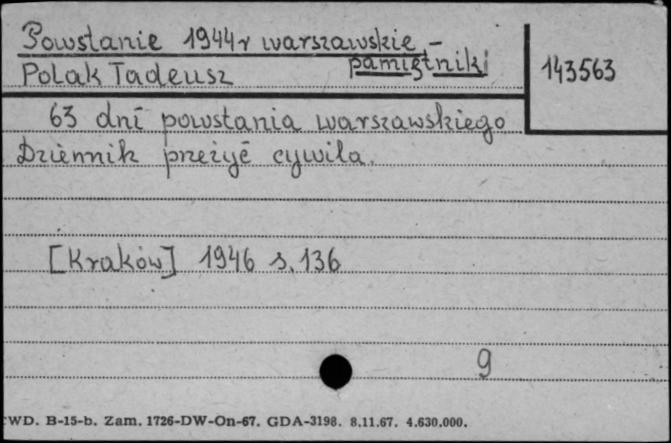 Powstanie 1944 r warszawskie -
pamiętniki
143563
Polak Tadeusz
63 dni powstania warszawskiego
Dziennik przeżyć cywila.
[Kraków] 1946 s. 136
9
WD. B-15-b. Zam. 1726-DW-On-67. GDA-3198. 8.11.67. 4.630.000.